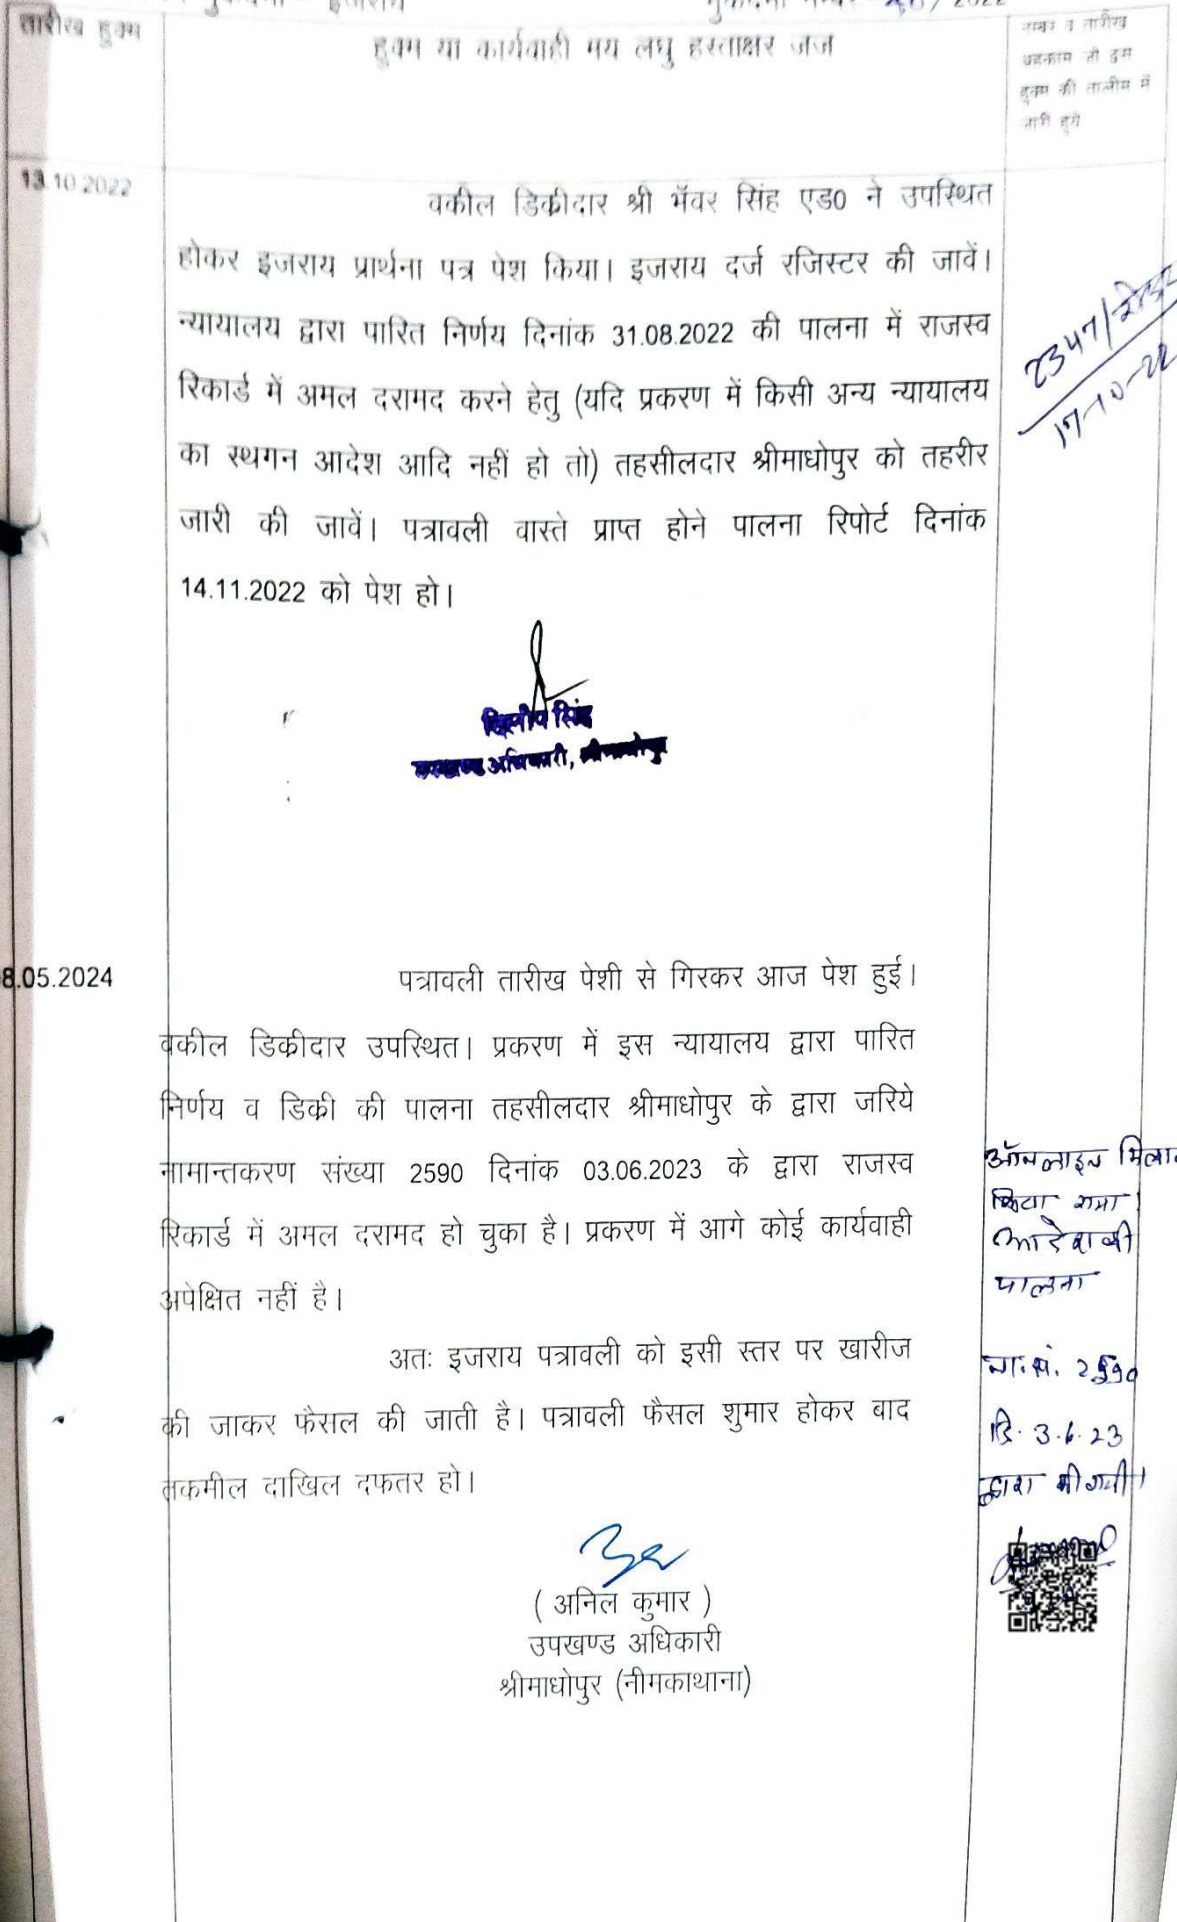 इजराय
2022
तारीख हुक्म
हुक्म या कार्यवाही मय लघु हस्ताक्षर जज
नम्बर व तारीख
अहकाम जो इस
हुक्म की तालीम में
जारी हुये
13.10.2022
वकील डिक्रीदार श्री भॅवर सिंह एड0 ने उपस्थित
होकर इजराय प्रार्थना पत्र पेश किया। इजराय दर्ज रजिस्टर की जावें।
न्यायालय द्वारा पारित निर्णय दिनांक 31.08.2022 की पालना में राजस्व
रिकार्ड में अमल दरामद करने हेतु (यदि प्रकरण में किसी अन्य न्यायालय
का स्थगन आदेश आदि नहीं हो तो) तहसीलदार श्रीमाधोपुर को तहरीर
जारी की जावें। पत्रावली वास्ते प्राप्त होने पालना रिपोर्ट दिनांक
14.11.2022 को पेश हो।
2347/
17-10-22
दिलीप सिंह
उपखण्ड अधिकारी, श्रीमाधोपुर
8.05.2024
पत्रावली तारीख पेशी से गिरकर आज पेश हुई।
वकील डिक्रीदार उपस्थित। प्रकरण में इस न्यायालय द्वारा पारित
निर्णय व डिक्री की पालना तहसीलदार श्रीमाधोपुर के द्वारा जरिये
नामान्तकरण संख्या 2590 दिनांक 03.06.2023 के द्वारा राजस्व
रिकार्ड में अमल दरामद हो चुका है। प्रकरण में आगे कोई कार्यवाही
अपेक्षित नहीं है।
अतः इजराय पत्रावली को इसी स्तर पर खारीज
की जाकर फैसल की जाती है। पत्रावली फैसल शुमार होकर बाद
तकमील दाखिल दफतर हो।
ऑनलाइन मिलान
किया गया।
आदेश की
पालना
ना.सं. 2590
दि. 3.6.23
द्वारा की गयी।
( अनिल कुमार )
उपखण्ड अधिकारी
श्रीमाधोपुर (नीमकाथाना)